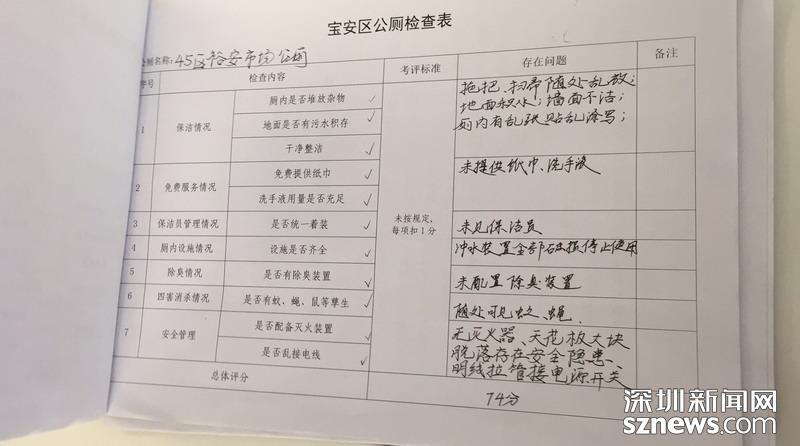 宝安区公厕检查表
公厕名称: 45区裕安市场公厕
序号 检查内容 考评标准 存在问题 备注
1 保洁情况 厕内是否堆放杂物 ✓ 拖把、扫帚随处乱放;
地面是否有污水积存 ✓ 地面积水;墙面不洁;
干净整洁 ✓ 厕内有乱张贴乱涂写;
2 免费服务情况 免费提供纸巾 ✓ 未提供纸巾、洗手液
洗手液用量是否充足 ✓
未按规定,
每项扣1分
3 保洁员管理情况 是否统一着装 ✓ 未见保洁员
4 厕内设施情况 设施是否齐全 ✓ 冲水装置全部破损停止使用
5 除臭情况 是否有除臭装置 ✓ 未配置除臭装置
6 四害消杀情况 是否有蚊、蝇、鼠等孳生 ✓ 随处可见蚊、蝇.
7 安全管理 是否配备灭火装置 ✓ 无灭火器、天花板大块
是否乱接电线 ✓ 脱落存在安全隐患、
明线拉管接电源开关
总体评分 74分
深圳新闻网
sznews.com